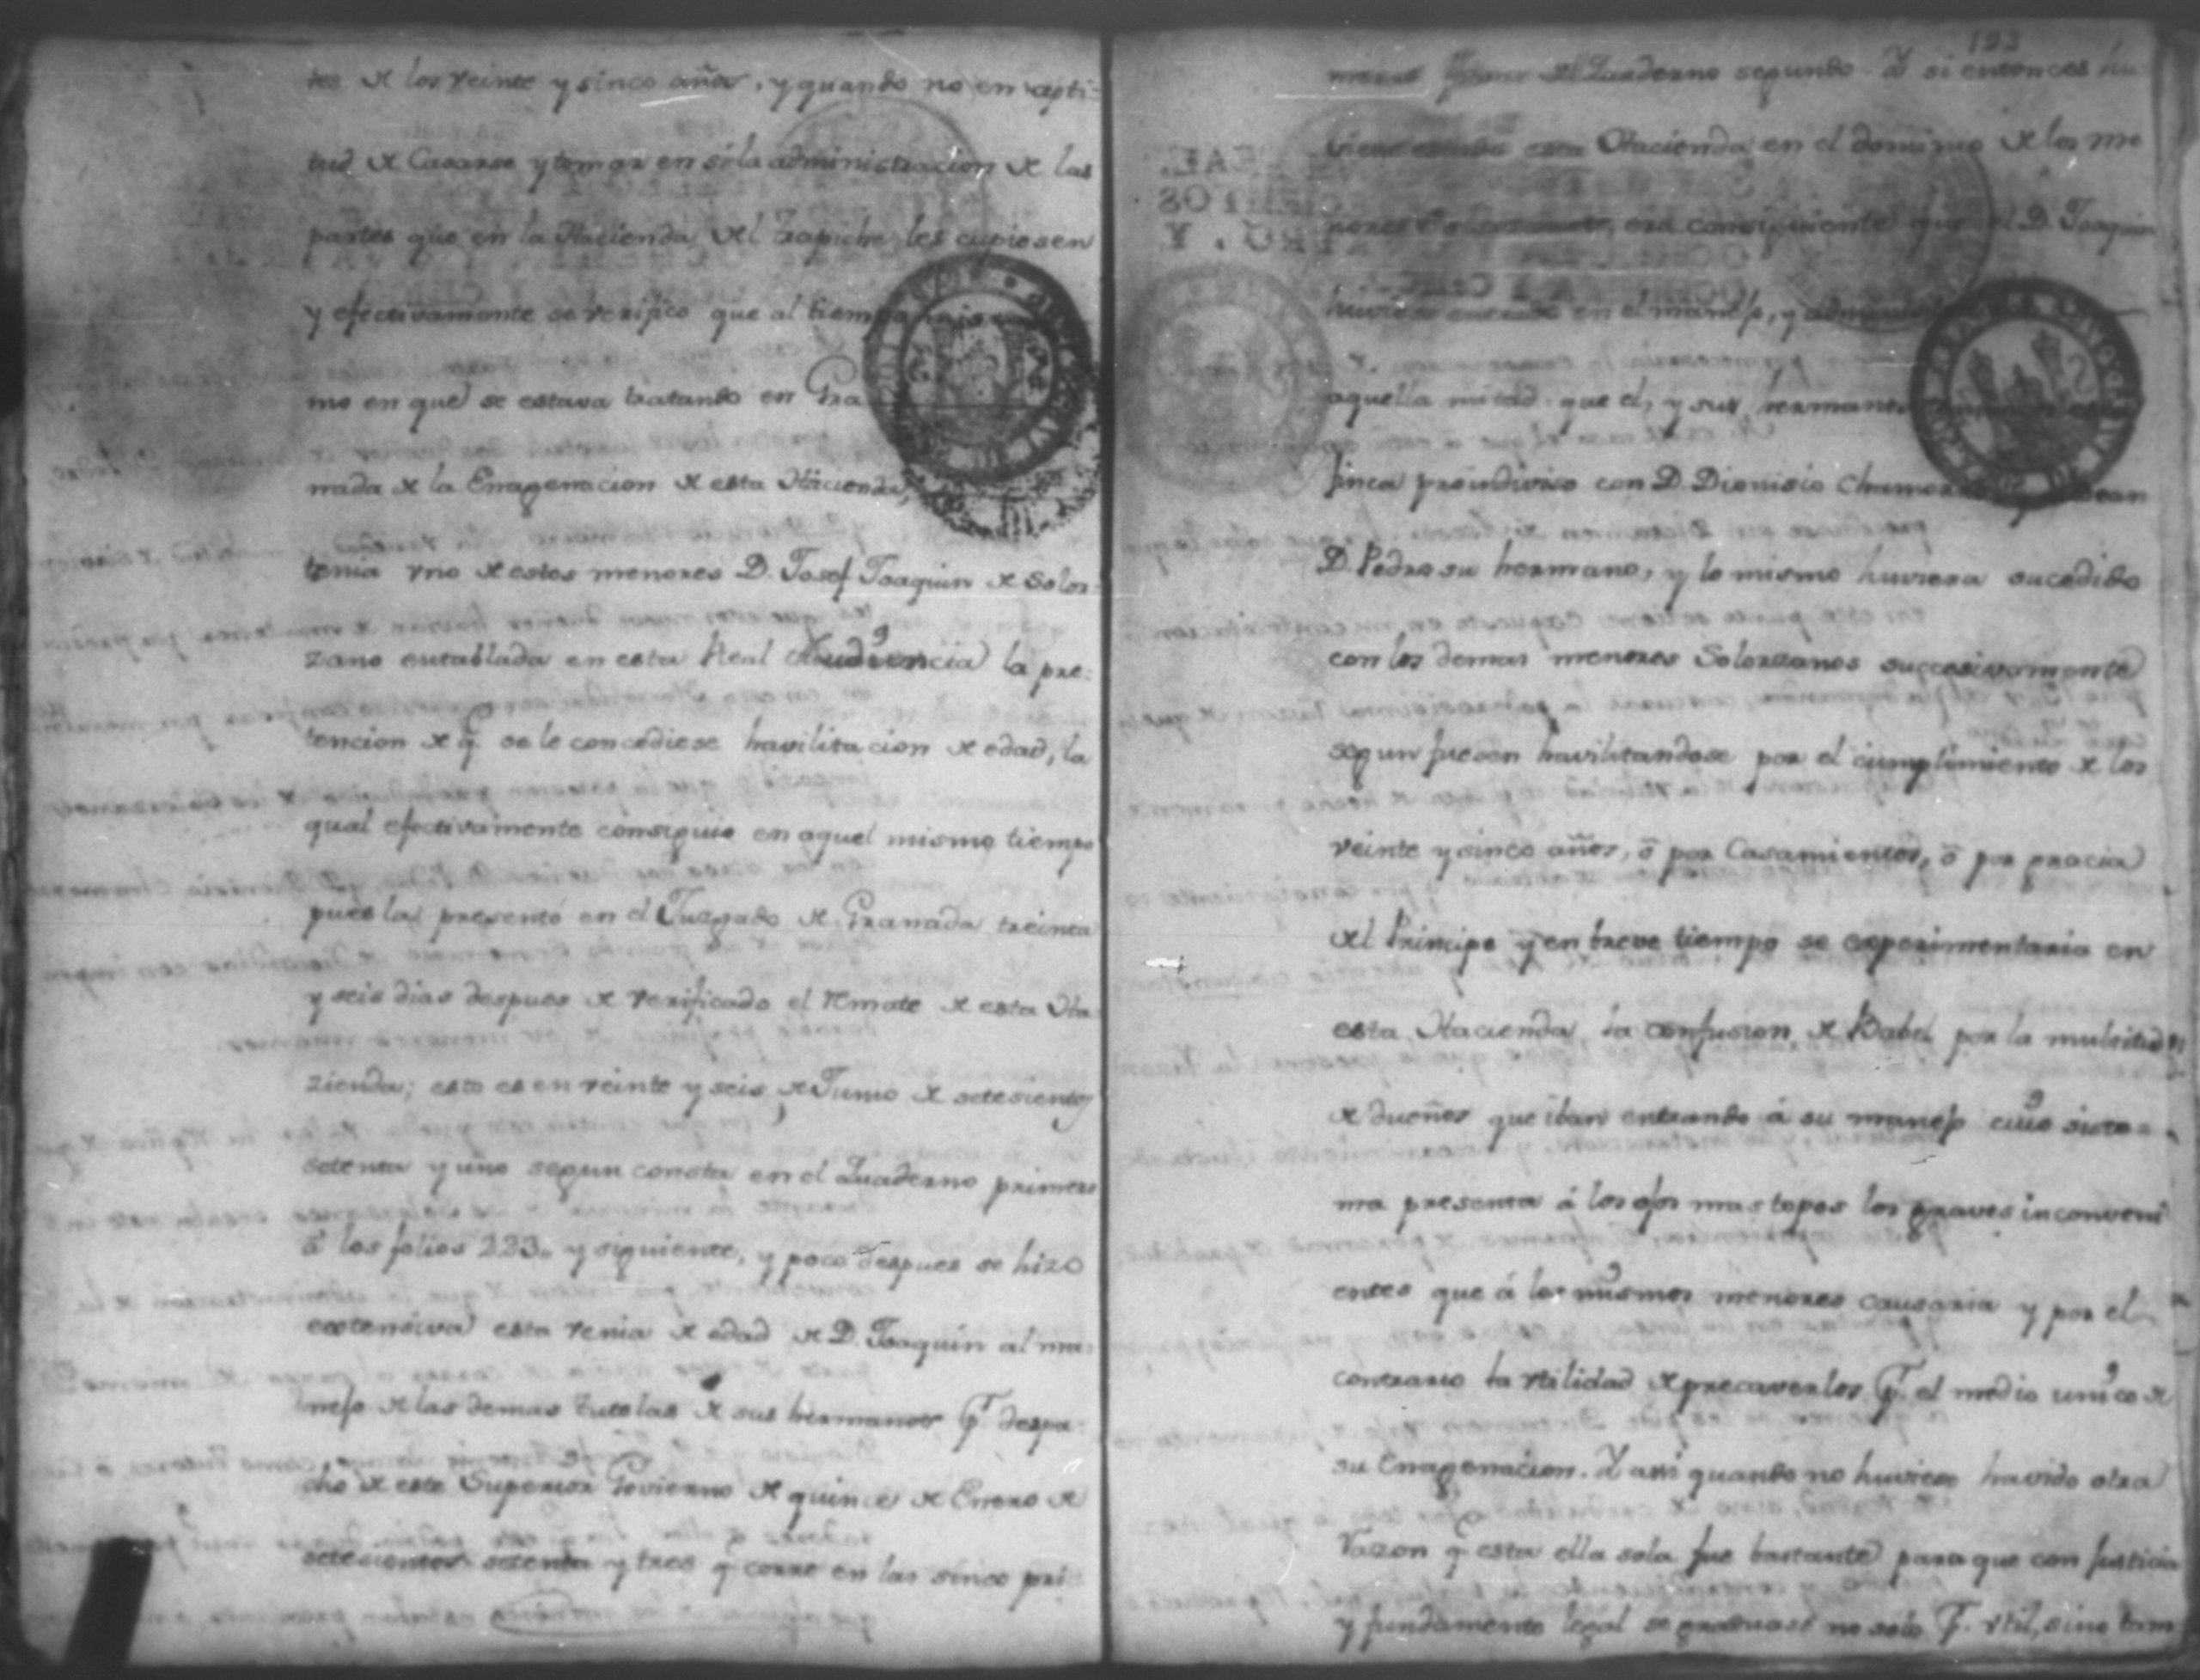 tes de los veinte y sinco años, y quando no en apti-
tud de Casarse y tomar en sí la administracion de las
partes que en la Hacienda del Trapiche les cupiesen
y efectivamente se verifico que al tiempo mis-
mo en que se estava tratando en Gra
nada de la Enagenacion de esta Hacienda,
tenia vno de estos menores D. Josef Joaquin de Solor-
zano entablada en esta Real Audiencia la pre-
tencion de q. se le concediese havilitacion de edad, la
qual efectivamente consiguio en aquel mismo tiempo
pues la presentó en el Juzgado de Granada treinta
y seis dias despues de verificado el Rmate de esta Ha-
zienda; esto es en veinte y seis de Junio de setesientos
setenta y uno segun consta en el Quaderno primero
á los folios 223. y siguiente, y poco despues se hizo
extensiva esta venia de edad de D. Joaquin al ma-
nejo de las demas tutelas de sus hermanos pr. despa-
cho de este Superior Govierno de quince de Enero de
setesientos setenta y tres q corre en las sinco pri
193
meras foxas del Quaderno segundo. Y si entonces hu-
viese estado esta Hacienda en el dominio de los me
nores Solorzanos, era consiguiente que el D. Joaquin
huviese entrado en el manejo, y
aquella mitad que el, y sus hermanos
finca proindiviso con D. Dionisio Chamorro
D. Pedro su hermano, y lo mismo huviera sucedido
con los demas menores Solorzanos succesivamente
segun fuesen havilitandose por el cumplimiento de los
veinte y sinco años, ó por Casamientos, ó por gracia
del Principe y en breve tiempo se experimentaria en
esta Hacienda la confusion de Babel por la multitud
de dueños que iban entrando á su manejo cuio siste-
ma presenta á los ojos mas topos los graves inconveni
entes que á los mismos menores causaria y por el
contrario la vtilidad de precaverlos pr. el medio unico de
su Enagenacion. Y assi quando no huviese havido otra
razon q esta ella sola fue bastante para que con justicia
y fundamento legal se graduase no solo pr. vtil, sino tam